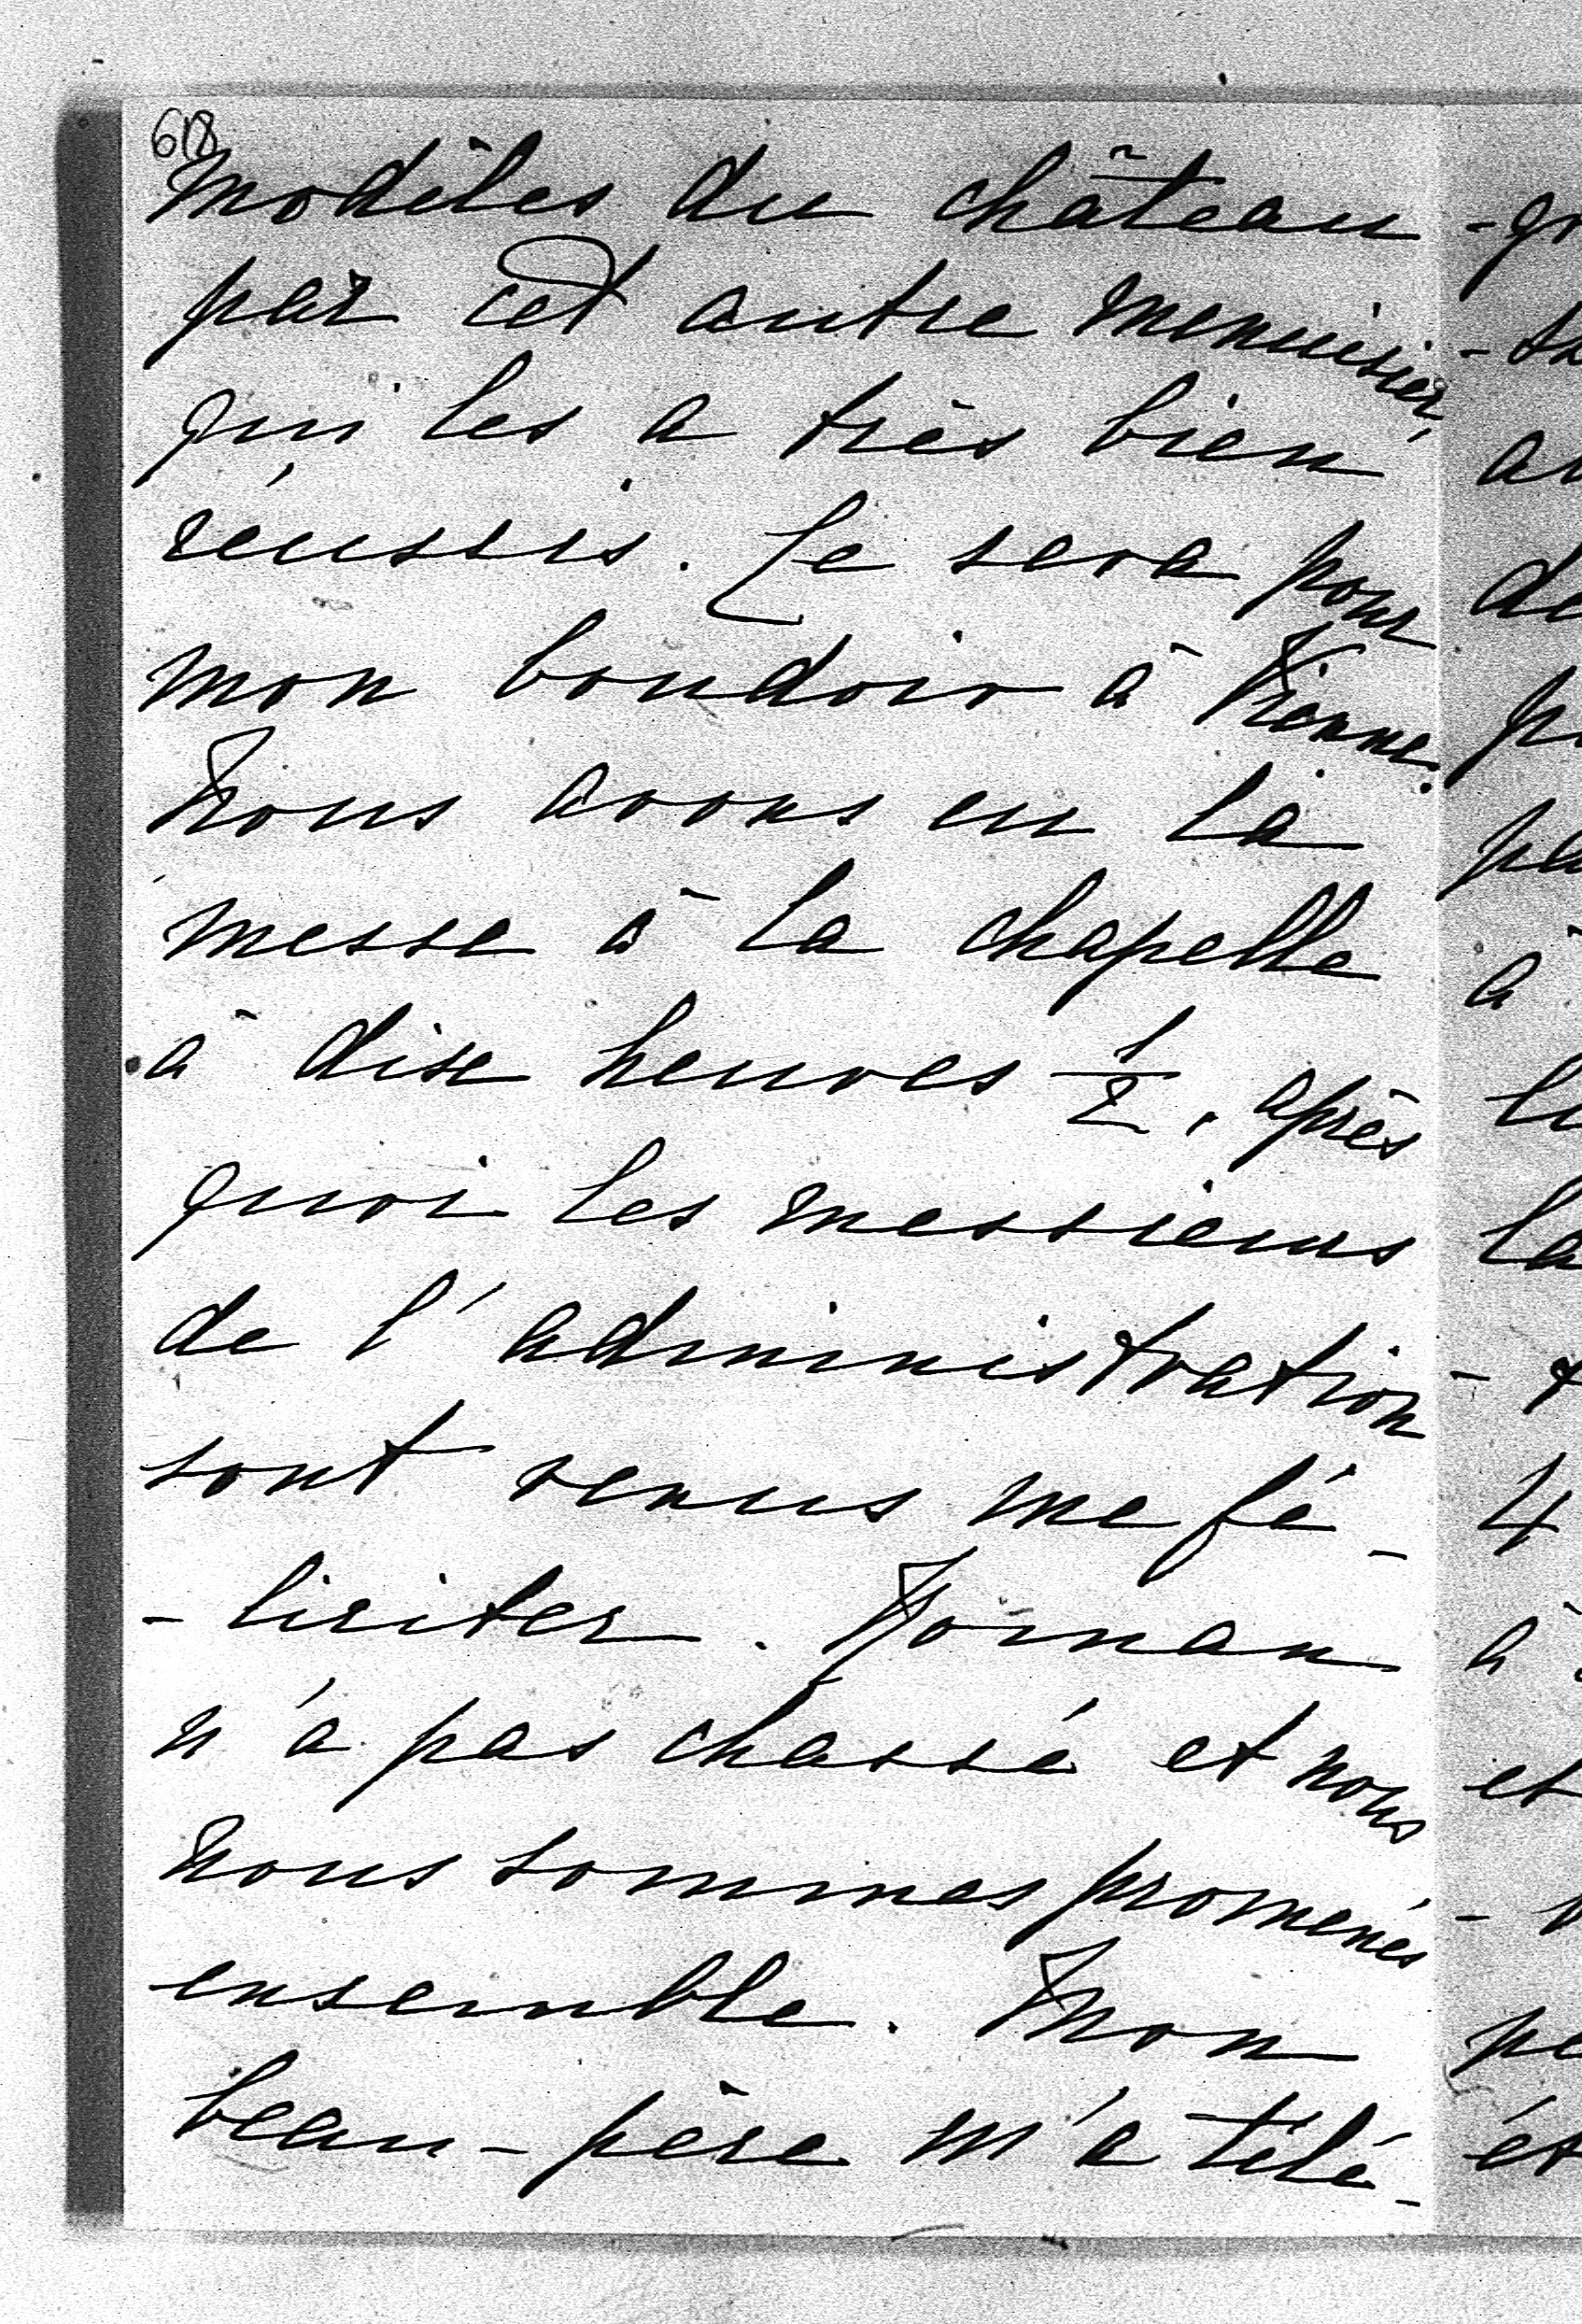 618
modèles du château
par cet autre menuisier,
qui les a très bien
réussis. Ce sera pour
mon boudoir à Vienne.
Nous avons eu la
messe à la chapelle
à dise heures 1/2, après
quoi les messieurs
de l'administration
sont venus me fé-
-liciter. Roman
n'a pas chassé et nous
nous sommes promenés
ensemble. Mon
beau-père m'a télé-